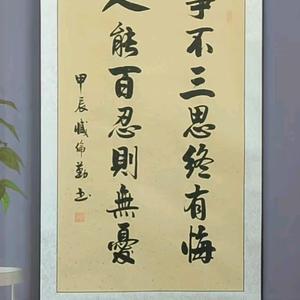 事不三思终有悔
人能百忍則無憂
甲辰
勤书